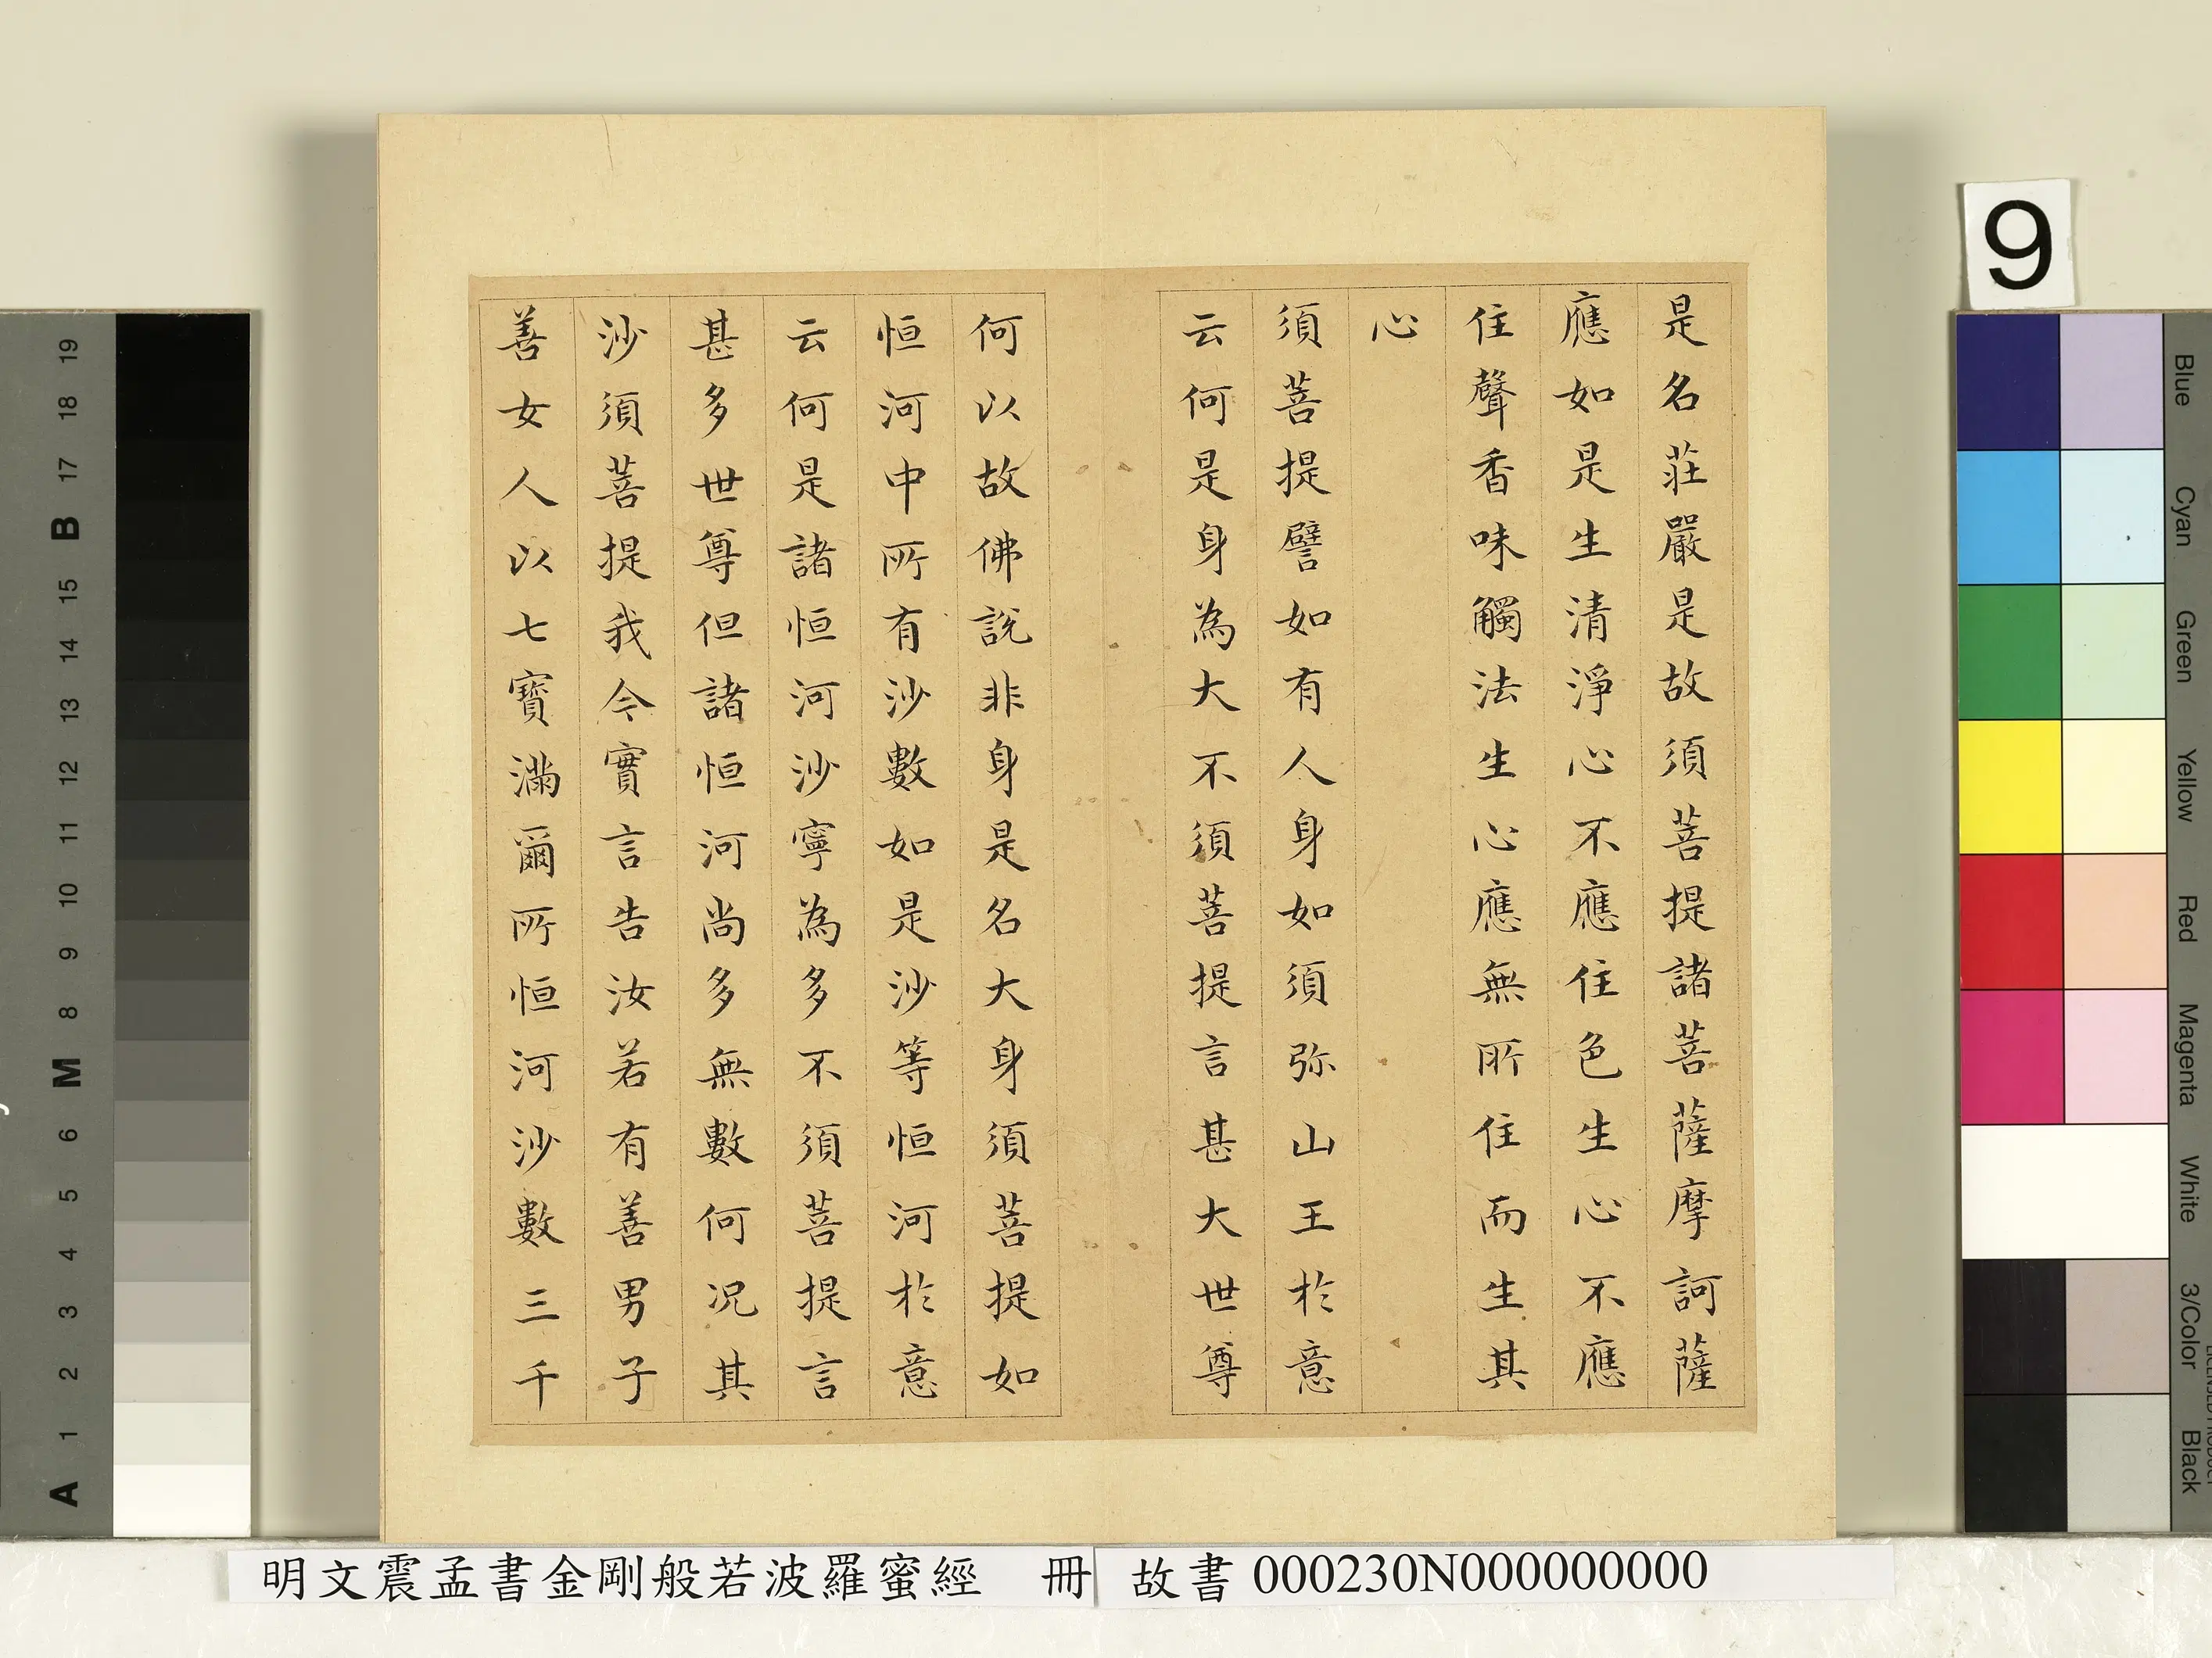 是名莊嚴是故須菩提諸菩薩摩訶薩
應如是生清淨心不應住色生心不應
住聲香味觸法生心應無所住而生其
心
須菩提譬如有人身如須弥山王於意
云何是身為大不須菩提言甚大世尊
何以故佛說非身是名大身須菩提如
恒河中所有沙數如是沙等恒河於意
云何是諸恒河沙寧為多不須菩提言
甚多世尊但諸恒河尚多無數何况其
沙須菩提我今實言告汝若有善男子
善女人以七寶滿爾所恒河沙數三千
明文震孟書金剛般若波羅蜜經 冊 故書 000230N000000000
9
Blue
Cyan
Green
Yellow
Red
Magenta
White
3/Color
Black
19
18
17
B
15
14
13
12
11
10
9
8
M
6
5
4
3
2
1
A